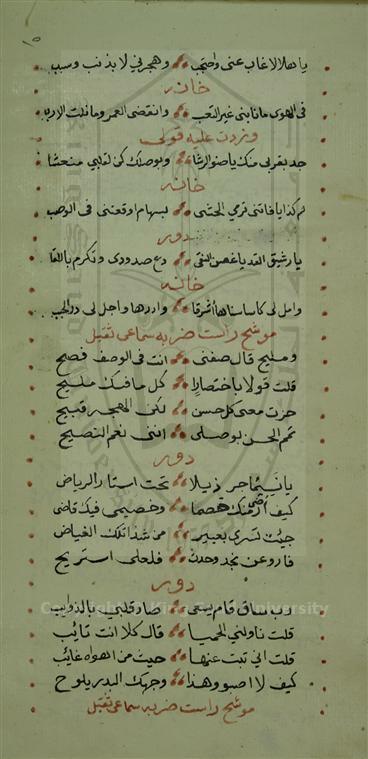 يا هلالا غاب عني واحتجب وهجرني لا بذنب وسبب
خانه
في الهوى ما نابني غير التعب وانقضى العمر وما نلت الارب
وزدت عليه قولي
جد بقربي منك يا صنو الرشا وبوصلك كن لقلبي منعشا
خانه
كم كذا يا فاتني ترمي الحشى بسهام اوقعتني في الوصب
دور
يا رشيق القد يا غصن النقي دع صدودي وتكرم باللقا
خانه
وامل لي كاسا سناها اشرقا وادرها واجل لي در الحبب
موشح راست ضربه سماعي ثقيل
ومليح قال صفني انت في الوصف فصيح
قلت قولا باختصارا كل ما فيك مليح
حزت معنى كل حسن لكن الهجر قبيح
تمم الحسن بوصلي انني نعم النصيح
دور
يا نسيما جر ذيلا تحت استار الرياض
كيف ارضى منك خصما وخصيمي فيك قاضي
جيت تسري بعبير من شذا تلك الغياض
فارو عن نجد وحدث فلعلي استريح
دور
رب ساق قام يسعى صاد قلبي بالذوايب
قلت ناولني الحميا قال كلا انت تائب
قلت اني تبت عنها حيث من اهواه غايب
كيف لا اصبو وهذا وجهك البدر يلوح
موشح راست ضربه سماعي ثقيل